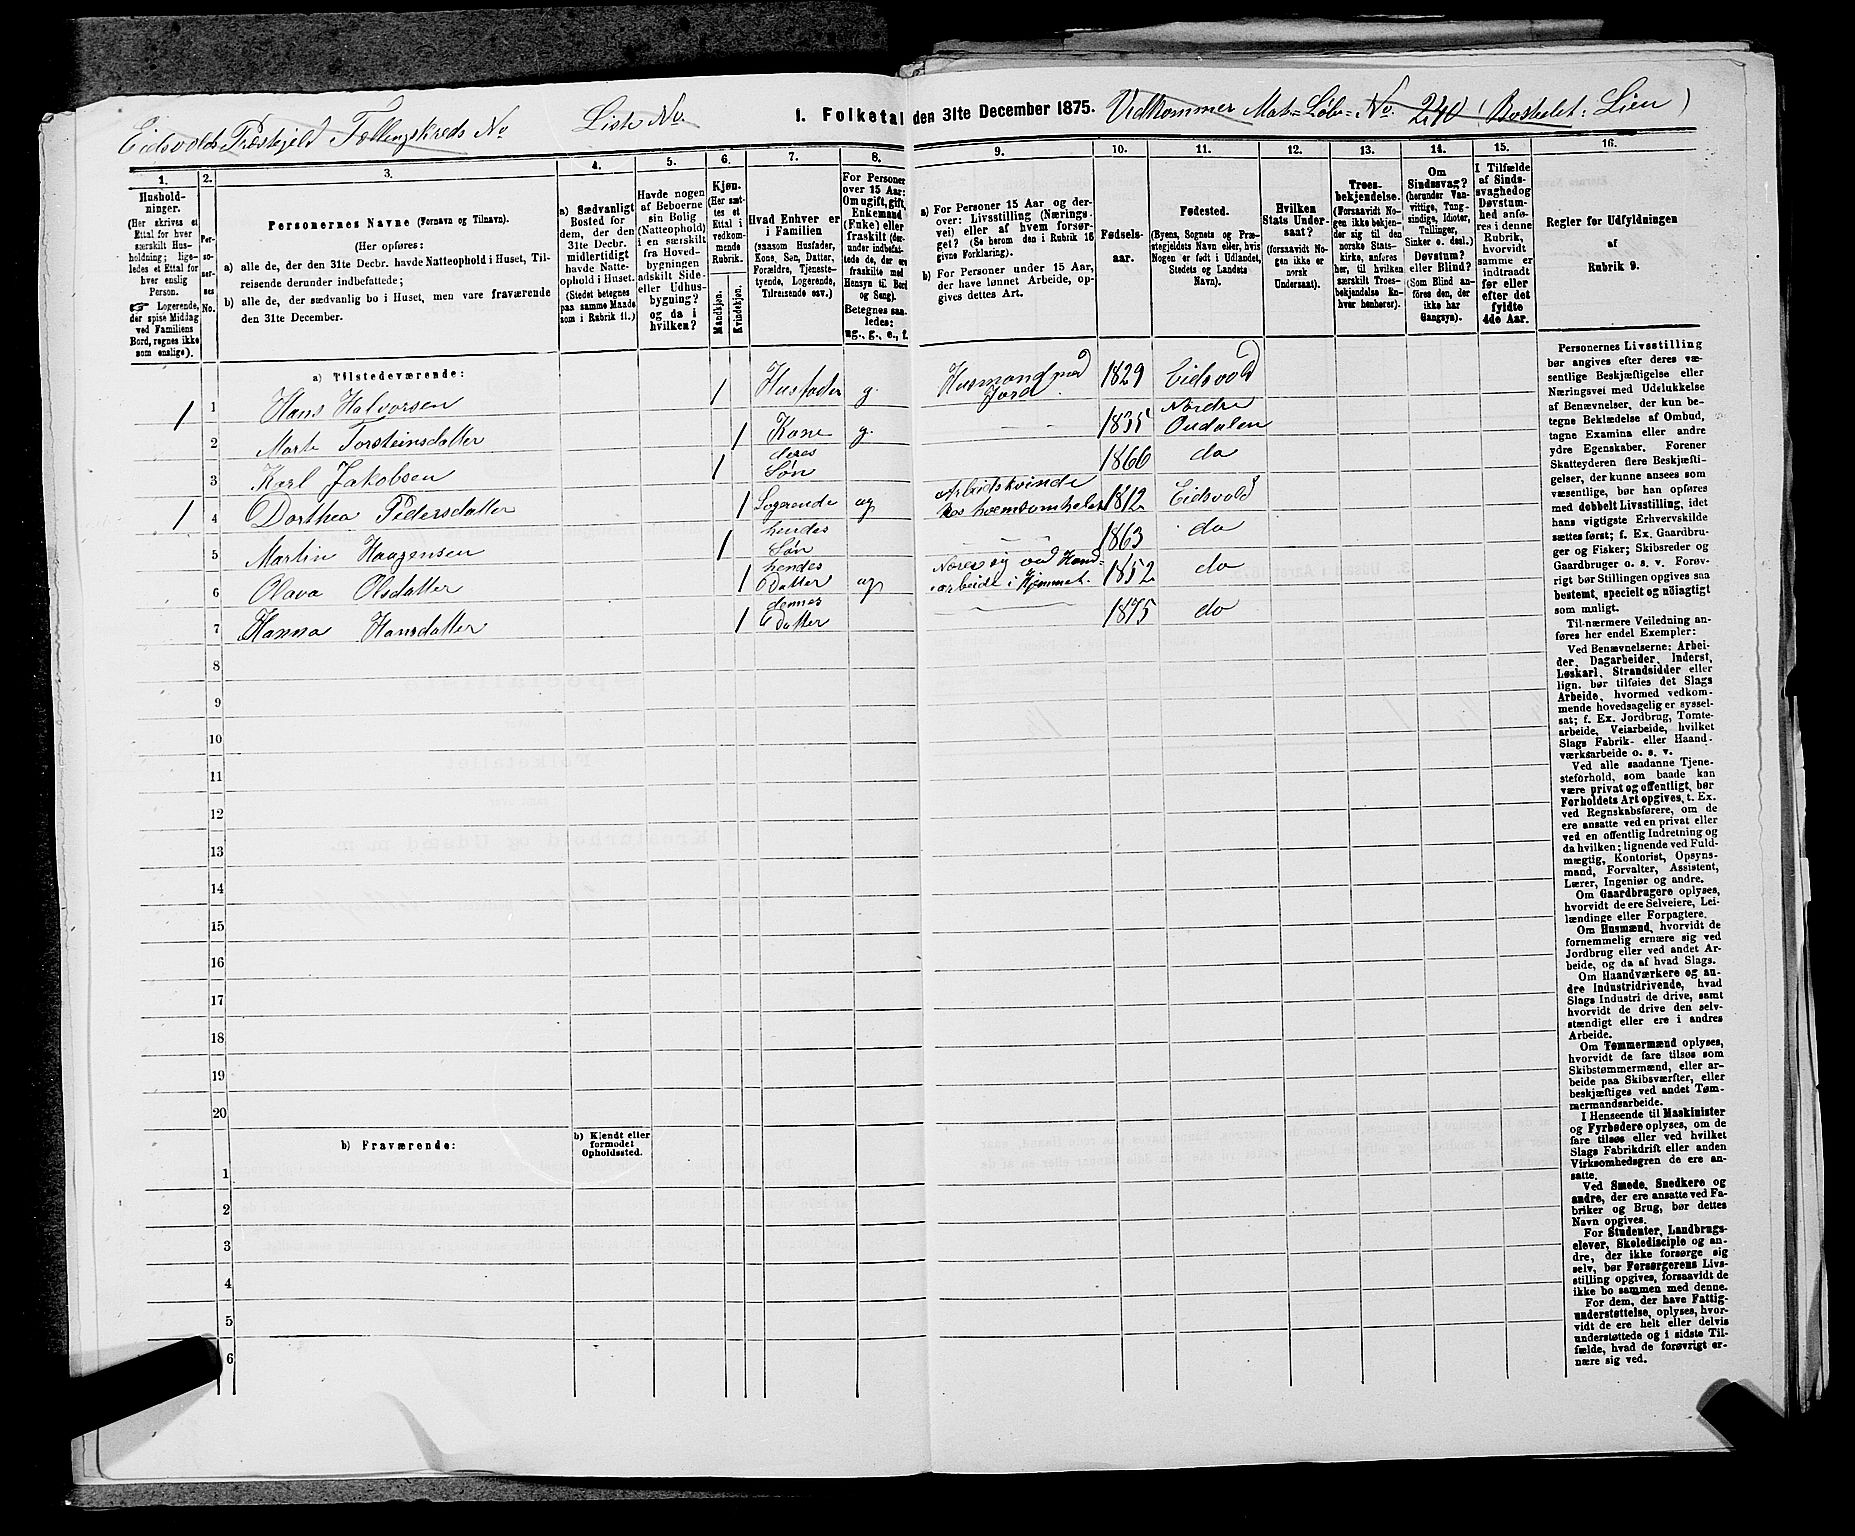 Eidsvolds Præstegjeld Tællingskreds No Liste No. I. Folketal den 31te December 1875. Vedkommer Mat-Løb-No. 240 (Bostedet: Lien)
1. 2. 3. 4. 5. 6. 7. 8. 9. 10. 11. 12. 13. 14. 15. 16.
Hushold-
ninger.
(Her skrives et
Ettal for hver
særskilt Hus-
holdning; lige-
ledes et Ettal for
hver enslig
Person.
☞ Logerende,
der spise Middag
ved Familiens
Bord, regnes ikke
som enslige).
Per-
so-
ner-
nes
No.
Personernes Navne (Fornavn og Tilnavn).
(Her opføres:
a) alle de, der den 31te Decbr. havde Natteophold i Huset, Til-
reisende derunder indbefattede;
b) alle de, der sædvanlig bo i Huset, men vare fraværende
den 31te December.
a) Sædvanligt
Bosted for
dem, der den
31te Decbr.
midlertidigt
havde Natte-
ophold i Huset.
(Stedet betegnes
paa samme Maade
som i Rubrik 11.)
Havde nogen
af Beboerne
sin Bolig
(Natteophold)
i en særskilt
fra Hoved-
bygningen
adskilt Side-
eller Udhus-
bygning?
og da i
hvilken?
Kjøn.
(Her sæt-
tes et
Ettal i
vedkom-
mende
Rubrik.
Mandkjøn.
Kvindekjøn.
Hvad Enhver er
i Familien
(saasom Husfader,
Kone, Søn, Datter,
Forældre, Tjeneste-
tyende, Logerende,
Tilreisende osv.)
For Personer
over 15 Aar:
Om ugift, gift,
Enkemand
(Enke) eller
fraskilt (der-
under indbefat-
tede de, der ere
fraskilte med
Hensyn til Bord
og Seng).
Betegnes saa-
ledes:
ug., g., e., f.
a) For Personer 15 Aar og der-
over: Livsstilling (Nærings-
vei) eller af hvem forsør-
get? (Se herom den i Rubrik 16
givne Forklaring).
b) For Personer under 15 Aar,
der have lønnet Arbeide, op-
gives dettes Art.
Fødsels-
aar.
Fødested.
(Byens, Sognets og Præ-
stegjeldets Navn eller, hvis
Nogen er født i Udlandet,
Stedets og Landets
Navn).
Hvilken
Stats Under-
saat?
(forsaavidt No-
gen ikke er
norsk
Undersaat).
Troes-
bekjendelse.
(Forsaavidt No-
gen ikke bekjen-
der sig til den
norske Stats-
kirke, anføres
her, til hvilken
særskilt Troes-
bekjendelse En-
hver henhører).
Om
Sindssvag?
(herunder Van-
vittige, Tung-
sindige, Idioter,
Tullinger,
Sinker o. desl.)
Døvstum?
eller Blind?
(Som Blind an-
føres den, der
ikke har
Gangsyn).
I Tilfælde
af Sinds-
svaghed og
Døvstum-
hed anfø-
res i denne
Rubrik,
hvorvidt
samme er
indtraadt
før eller
efter det
fyldte
4de Aar.
Regler for Udfyldningen
af
Rubrik 9.
a) Tilstedeværende:
1 1 Hans Halvorsen 1 Husfader g. Husmand med Jord 1829 Eidsvold
2 Marte Torsteinsdatter 1 Kone g. 1835 Nordre Oudalen
3 Karl Jakobsen 1 deres Søn 1866 do
1 4 Dorthea Pedersdatter 1 Logerende ug Arbeidskvinde 1812 Eidsvold
5 Martin Haagensen 1 hendes Søn 1863 do
6 Olava Olsdatter 1 hendes Datter ug Nærer sig ved Haand-arbeide i Hjemmet. 1852 do
7 Hanna Hansdatter 1 dennes Datter 1875 do
8
9
10
11
12
13
14
15
16
17
18
19
20
b) Fraværende:
b) Kjendt eller
formodet
Opholdssted.
1
2
3
4
5
6
Personernes Livsstilling
bør angives efter deres væ-
sentlige Beskjæftigelse eller
Næringsvei med Udelukkelse
af Benævnelser, der kun be-
tegne Beklædelse af Ombud,
tagne Examina eller andre
ydre Egenskaber. Forener
Skatteyderen flere Beskjæfti-
gelser, der kunne ansees som
væsentlige, bør han opføres
med dobbelt Livsstilling, idet
hans vigtigste Erhvervskilde
sættes først; f. Ex. Gaardbru-
ger og Fisker; Skibsreder og
Gaardbruger o. s. v. Forøv-
rigt bør Stillingen opgives saa
bestemt, specielt og nöiagtigt
som muligt.
Til nærmere Veiledning an-
føres her endel Exempler:
Ved Benævnelserne: Arbei-
der, Dagarbeider, Inderst,
Løskarl, Strandsidder eller
lign. bør tilføies det Slags
Arbeide, hvormed vedkom-
mende hovedsagelig er syssel-
sat; f. Ex. Jordbrug, Tomte-
arbeide, Veiarbeide, hvilket
Slags Fabrik- eller Haand-
værksarbeide o. s. v.
Ved alle saadanne Tjene-
steforhold, som baade kan
være privat og offentligt, bør
Forholdets Art opgives, t. Ex.
ved Regnskabsførere, om de
ere ansatte ved en privat eller
ved en offentlig Indretning og
da hvilken; lignende ved Fuld-
mægtig, Kontorist, Opsyns-
mand, Forvalter, Assistent,
Lærer, Ingeniør og andre.
Om Gaardbrugere oplyses,
hvorvidt de ere Selveiere, Lei-
lændinge eller Forpagtere.
Om Husmænd, hvorvidt de
fornemmelig ernære sig ved
Jordbrug eller ved andet Ar-
beide, og da af hvad Slags.
Om Haandværkere og an-
dre Industridrivende, hvad
Slags Industri de drive, samt
hvorvidt de drive den selv-
stændigt eller ere i andres
Arbeide.
Om Tømmermænd oplyses,
hvorvidt de fare tilsøs som
Skibstømmermænd, eller ar-
beide paa Skibsværfter, eller
beskjæftiges ved andet Tøm-
mermandsarbeide.
I Henseende til Maskinister
og Fyrbødere oplyses, om de
fare tilsøs eller ved hvilket
Slags Fabrikdrift eller anden
Virksomhedsgren de ere an-
satte.
Ved Smede, Snedkere og
andre, der ere ansatte ved Fa-
briker og Brug, bør dettes
Navn opgives.
For Studenter, Landbrugs-
elever, Skoledisciple og an-
dre, der ikke forsørge sig
selv, bør Forsørgerens Livs-
stilling opgives, forsaavidt de
ikke bo sammen med denne.
For dem, der have Fattig-
understøttelse, oplyses, hvor-
vidt de ere helt eller delvis
understøttede og i sidste Til-
fælde, hvad de forøvrigt er-
nære sig ved.